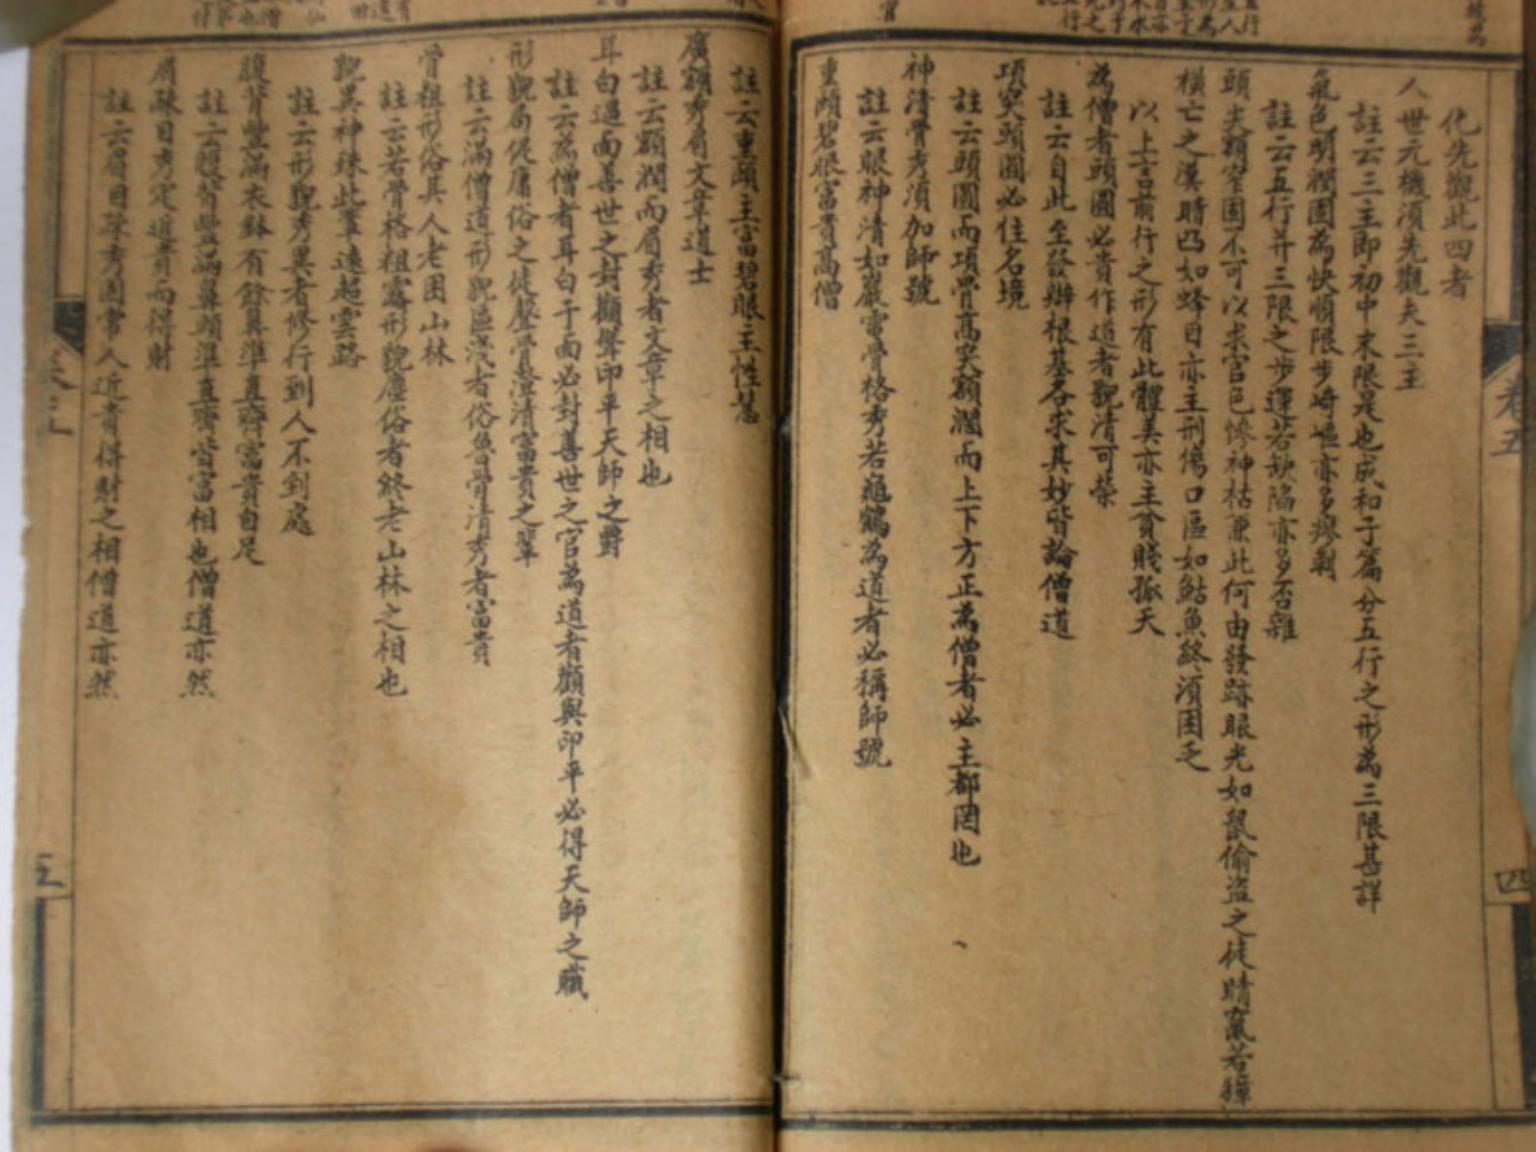 化先觀此四者
人世元機須先觀夫三主
註云三主即初中末限是也成和子篇分五行之形為三限甚詳
氣色明潤固為快順限步崎嶇亦多疼剝
註云五行并三限之步運若缺陷亦多否雜
頭尖額窄固不可以求官色慘神枯兼此何由發跡眼光如鼠偷盜之徒睛竄若獐
橫亡之漢睛凸如蜂目亦主刑傷口區如鮎魚終須困乏
以上言前行之形有此體美亦主貧賤孤夭
為僧者頭圓必貴作道者貌清可榮
註云自此至發辦根基各求其妙皆論僧道
項突頭圓必住名境
註云頭圓而項骨高突額濶而上下方正為僧者必主都罔也
神清骨秀須加師號
註云眼神清如巖電骨格秀若龜鶴為道者必稱師號
重頤碧眼富貴高僧
註云重頤主富碧眼主性慧
廣額秀眉文章道士
註云額潤而眉秀者文章之相也
耳白過面善世之封顴聳印平天師之爵
註云為僧者耳白于面必封善世之官為道者顴與印平必得天師之職
形貌局促庸俗之徒聲骨澄清富貴之輩
註云滿僧道形貌區淺者俗魯骨清秀者富貴
骨粗形俗其人老困山林
註云若骨格粗露形貌塵俗者終老山林之相也
貌異神殊此輩遠超雲路
註云形貌秀異者修行到人不到處
腹背豐滿衣鉢有餘鼻準直齊富貴自足
註云腹背豐滿鼻頭準直齊皆富相也僧道亦然
眉疎目秀定近貴而得財
註云眉目疎秀固常人近貴得財之相僧道亦然
卷五
四
五